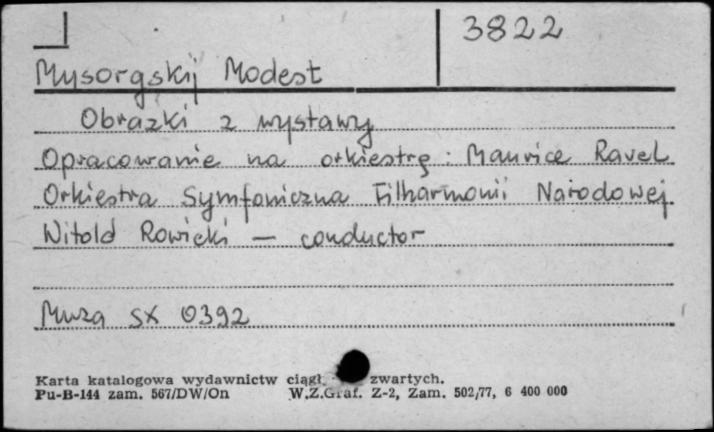 3822
Mysorgskij Modest
Obrazki z wystawy
Opracowanie na orkiestrę : Maurice Ravel
Orkiestra Symfoniczna Filharmonii Narodowej
Witold Rowicki — conductor
Muza SX 0392
Karta katalogowa wydawnictw ciągł. zwartych.
Pu-B-144 zam. 567/DW/On W.Z.Graf. Z-2, Zam. 502/77, 6 400 000